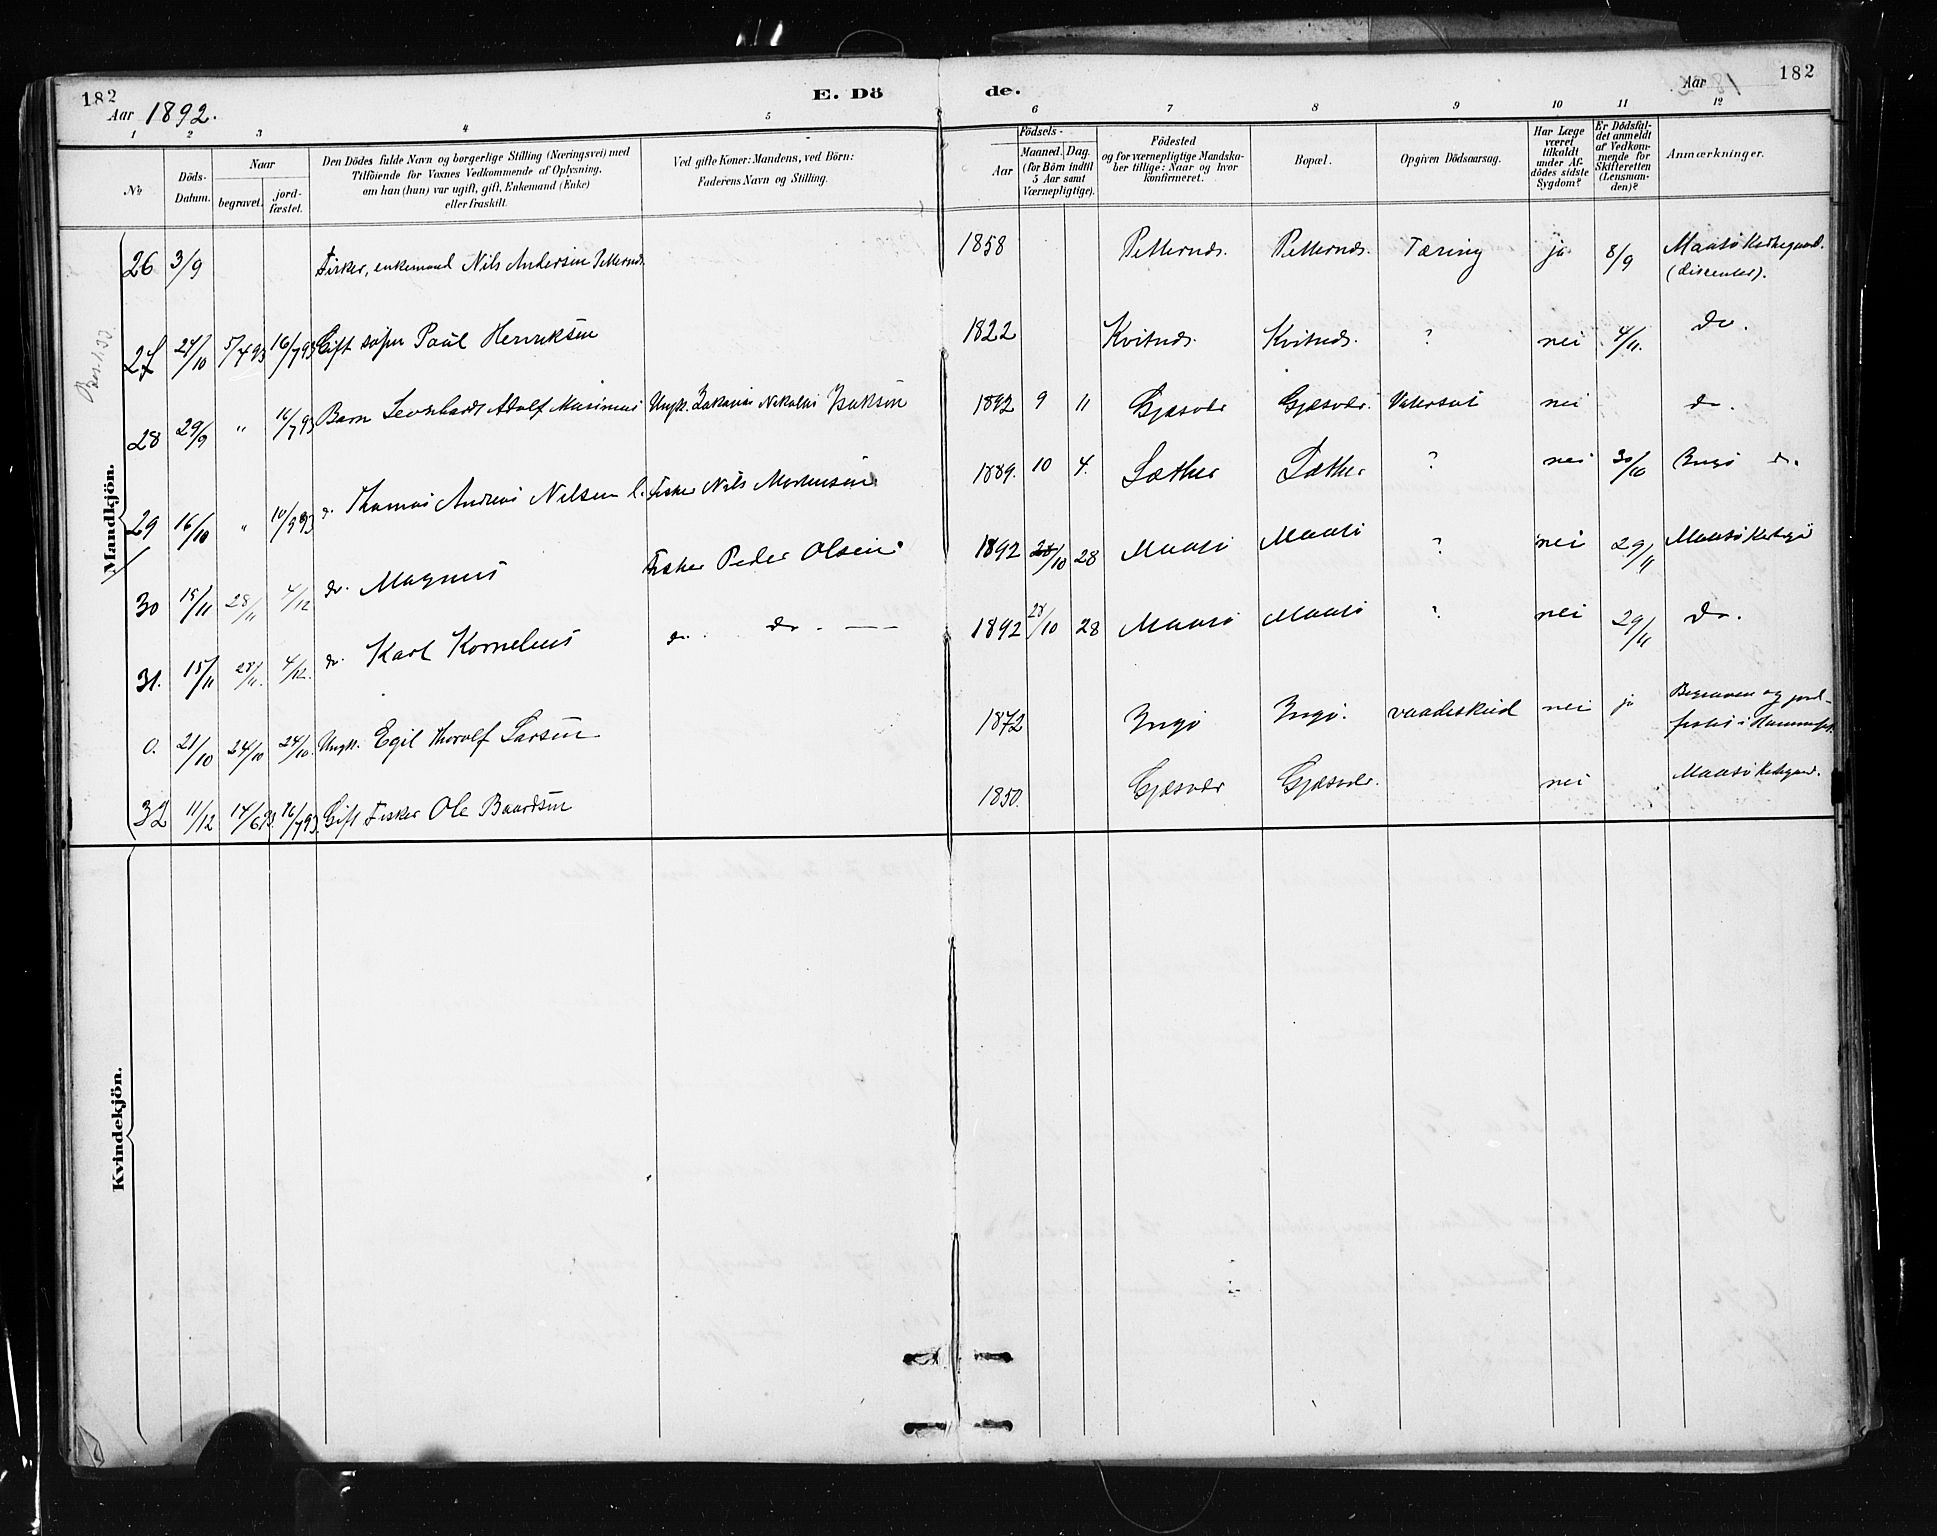 182
Aar 1892.
E. Dö
de.
Aar
182
1 2 3 4 5 6 7 8 9 10 11 12
No
Döds-Datum.
Naar
begravet.
jord-fæstet.
Den Dödes fulde Navn og borgerlige Stilling (Næringsvei) med
Tilföiende for Voxnes Vedkommende af Oplysning,
om han (hun) var ugift, gift, Enkemand (Enke)
eller fraskilt.
Ved gifte Koner: Mandens, ved Börn:
Faderens Navn og Stilling.
Födsels-
Aar
Maaned. Dag.
(for Börn indtil
5 Aar samt
Værnepligtige).
Födested
og for værnepligtige Mandska-
ber tillige: Naar og hvor
konfirmeret.
Bopæl.
Opgiven Dödsaarsag.
Har Læge
været
tilkaldt
under Af-
dödes sidste
Sygdom?
Er Dödsfal-
det anmeldt
af Vedkom-
mende for
Skifteretten
(Lensman-
den)?
Anmærkninger.
Mandkjön.
26 3/9 Fisker, enkemand Nils Andersen Petternds. 1858 Petternds. Petternds. Tæring ja 8/9 Maasö Kirkegaard. (dissenter).
27 /10 5/4 93 16/7 93 Gift Paul Henriksen 1822 Kvitnds. Kvitnds. ? nei 4/11. do.
28 29/9 " 16/7 93 Barn Leonhard Adolf Ungk. Zakarias Nikolai Isaksen 1892 9 11 Gjæsvær Gjæsvær. nei do.
29 16/10 " 10/9 93 do. Thomas Andreas Nilsen Fisker Nils Mortensen 1889. 10 4. Sæther Sæther ? nei 30/10 Ingö do.
30 15/11 28/11 4/12 do. Magnus Fisker Peder Olsen. 1892 28/10 28 Maasö Maasö ? nei 29/11 Maasö
31. 15/11 28/11. 4/12. do. Karl Kornelius do. do. 1892 28/10 28 Maasö Maasö ? nei 29/11 do.
0. 21/10 24/10 24/10. Ungk. Egil Thorolf Larsen 1872 Ingö Ingö. vaadeskud nei ja Begraven og jord-
fæstet i Hammerfest.
32 11/12 14/6 93. 16/7 93. Gift Fisker Ole Baardsen 1850. Gjæsvær Gjæsvær. nei Maasö Kirkegaard.
Kvindekjön.